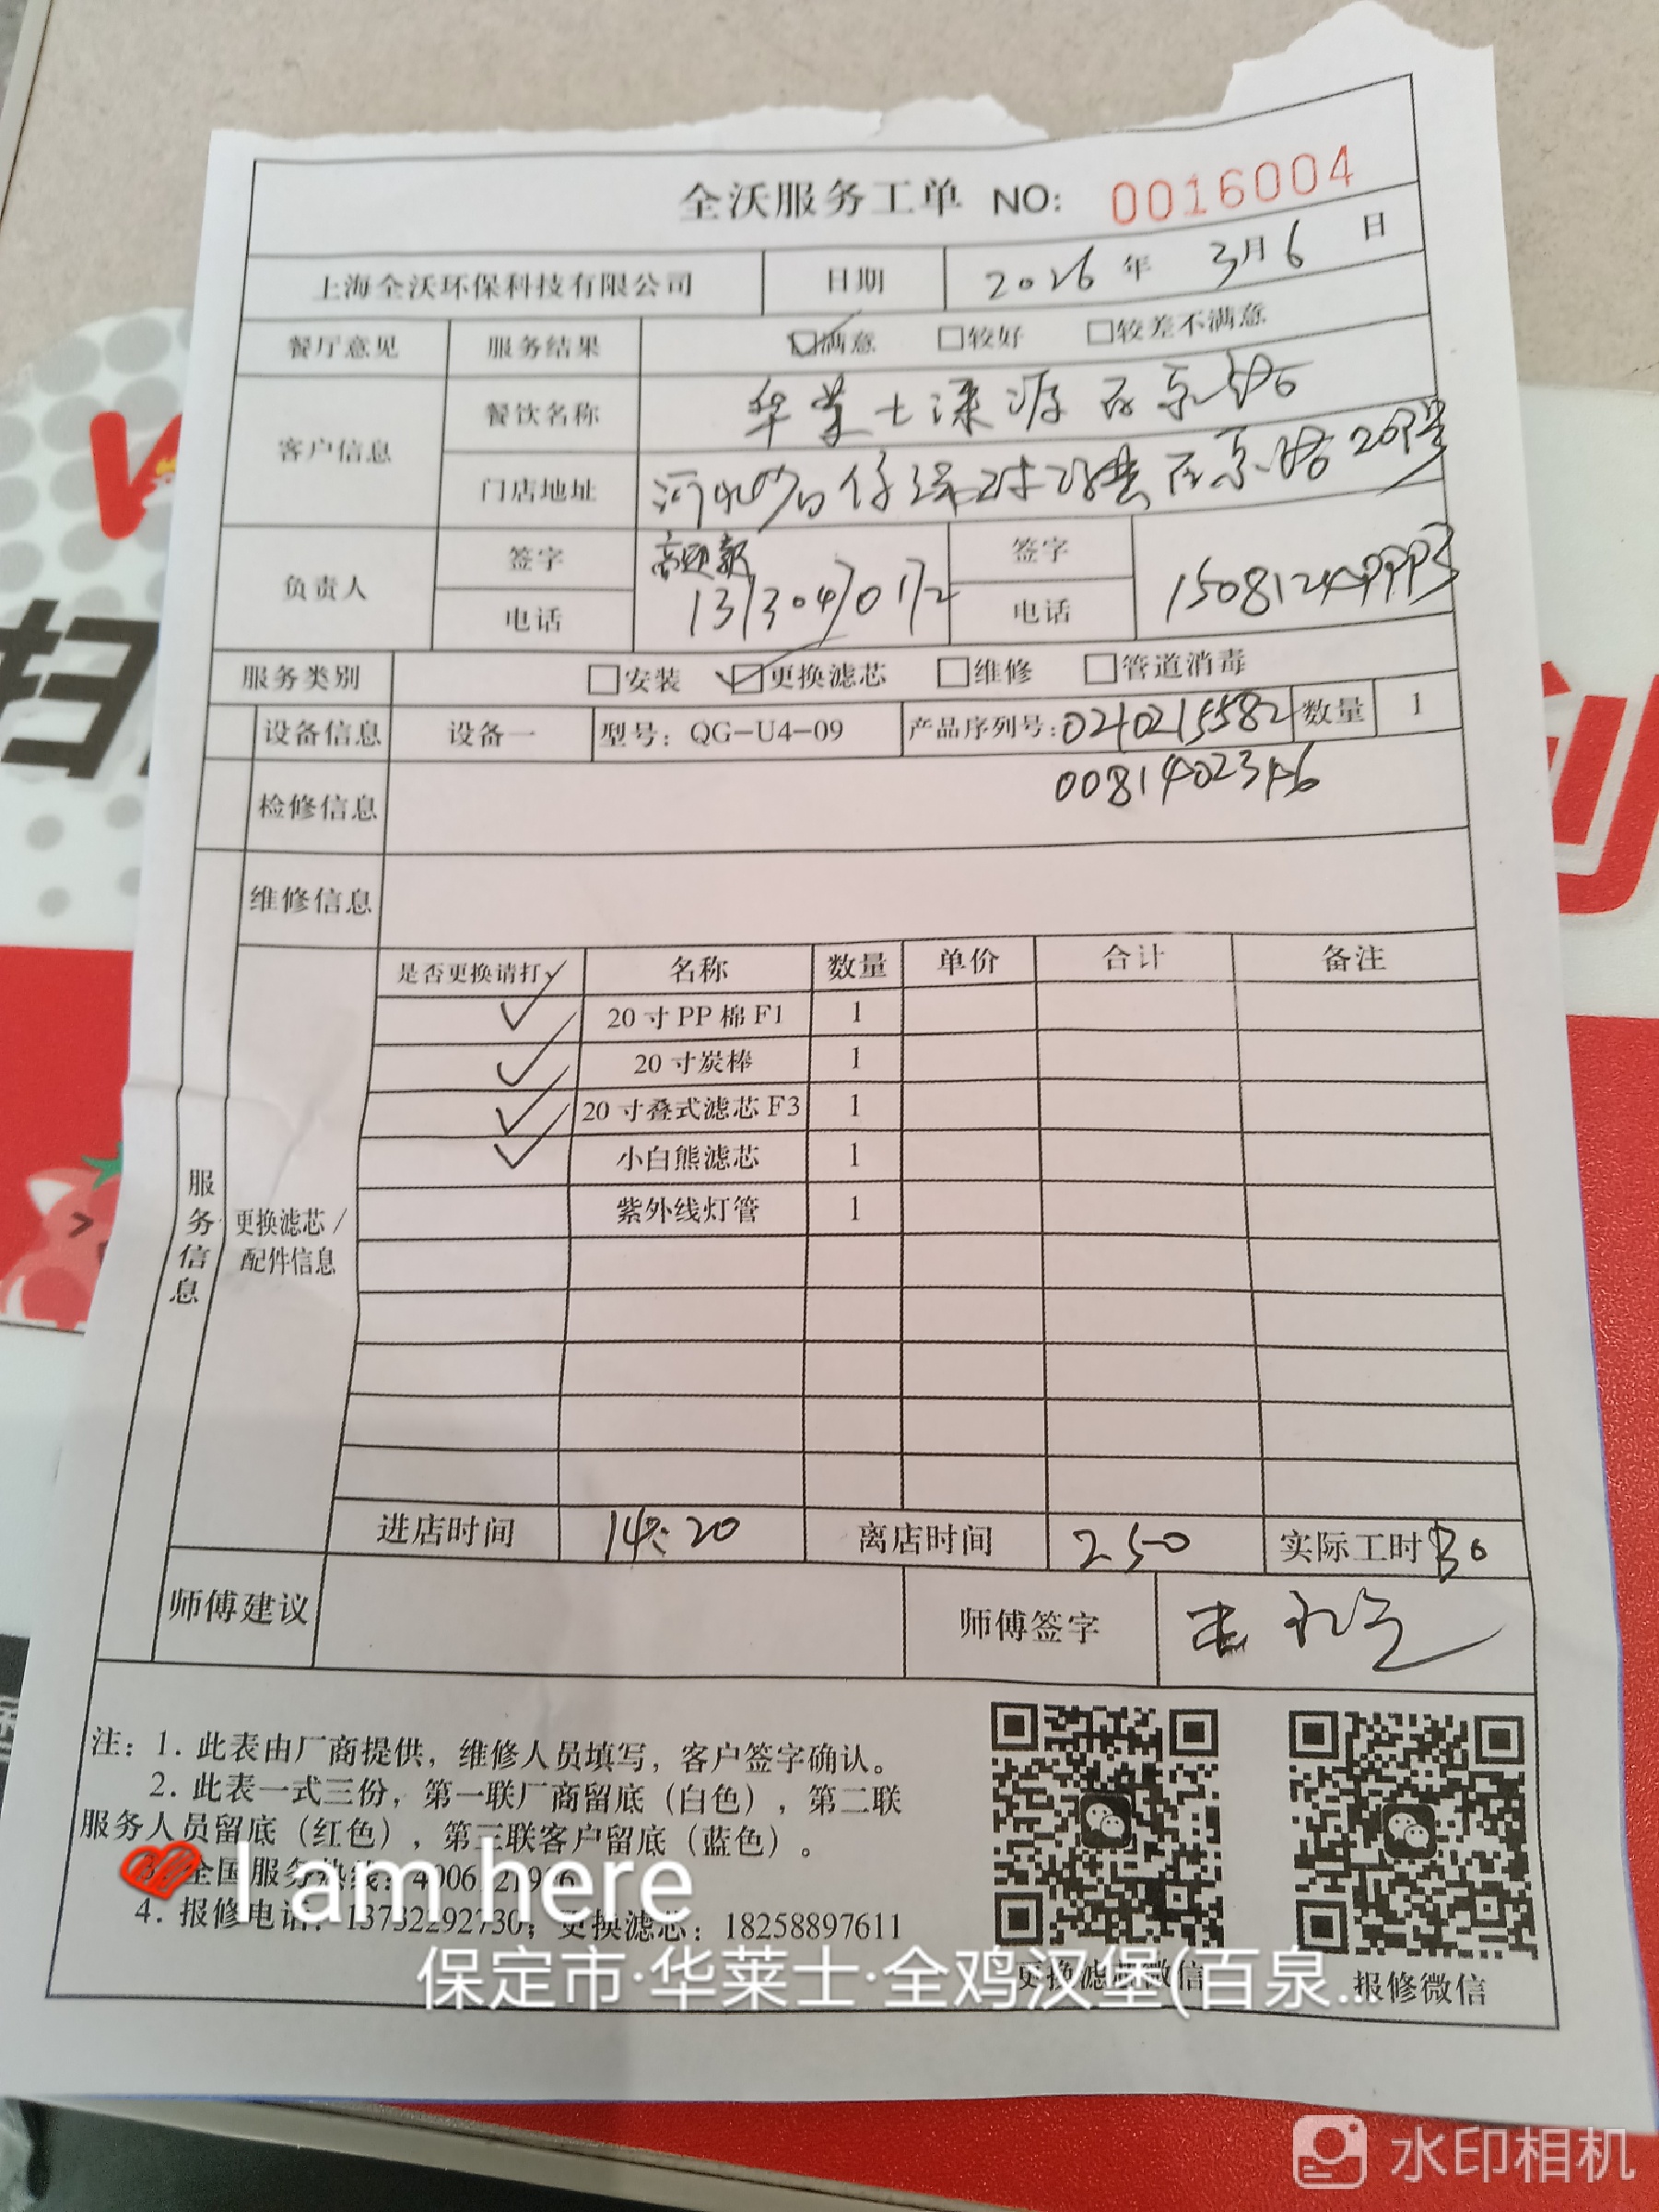 全沃服务工单 NO: 0016004
上海全沃环保科技有限公司 日期 2026 年 3月6 日
餐厅意见 服务结果 满意 较好 较差不满意
客户信息 餐饮名称 华莱士涞源百泉路
门店地址 河北省
负责人 签字 签字
电话 13730470172 电话
服务类别 安装 更换滤芯 维修 管道消毒
设备信息 设备一 型号: QG-U4-09 产品序列号: 数量 1
检修信息
维修信息
是否更换请打✓ 名称 数量 单价 合计 备注
✓ 20寸PP棉F1 1
✓ 20寸炭棒 1
✓ 20寸叠式滤芯F3 1
✓ 小白熊滤芯 1
紫外线灯管 1
服务信息
更换滤芯/
配件信息
进店时间 14:20 离店时间 250 实际工时 30
师傅建议 师傅签字
注: 1. 此表由厂商提供, 维修人员填写, 客户签字确认。
2. 此表一式三份, 第一联厂商留底 (白色), 第二联
服务人员留底 (红色), 第三联客户留底 (蓝色)。
全国服务热线:
I am here
4. 报修电话: 13732292730; 更换滤芯: 18258897611
更换滤芯微信 报修微信
保定市·华莱士·全鸡汉堡(百泉...
水印相机